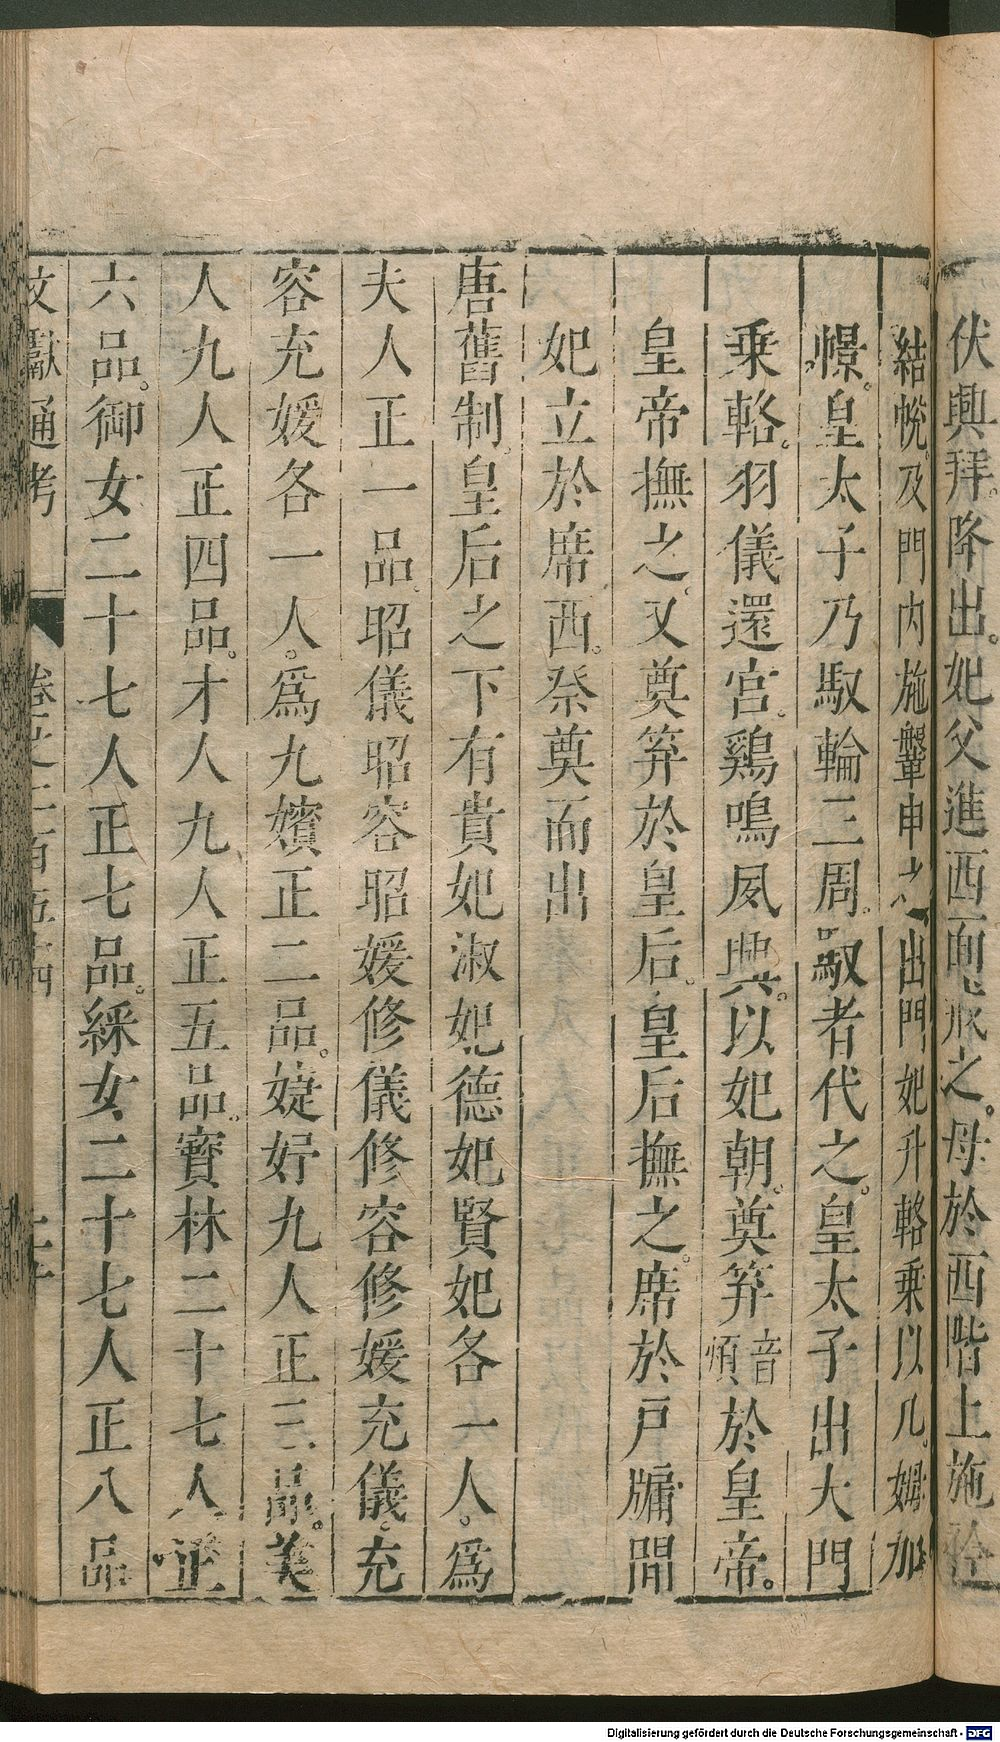 伏興拜降出。妃父進西面戒之。母於西階上施
結帨。及門內施鞶申之出門妃升輅乘以几。姆加
憬。皇太子乃馭輪三周。馭者代之。皇太子出大門
乗輅。羽儀還宮。鷄鳴夙興。以妃朝。奠笲音煩於皇帝。
皇帝撫之。又奠笲於皇后。皇后撫之。席於戸牖間
妃立於席西。祭奠而出
唐舊制。皇后之下有貴妃淑妃德妃賢妃各一人。爲
夫人正一品。昭儀昭容昭媛修儀修容修媛充儀充
容充媛各一人。爲九嬪正二品。婕妤九人正三品。美
人九人正四品。才人九人正五品。寶林二十七人正
六品。御女二十七人正七品。綵女二十七人正八品
文獻通考 卷之二百五十四
Digitalisierung gefördert durch die Deutsche Forschungsgemeinschaft - DFG